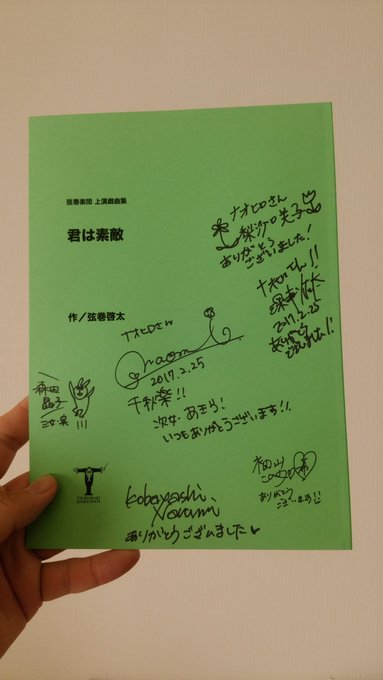 弦巻楽団 上演戯曲集
君は素敵
作／弦巻啓太
ナオヒロさん
ありがとう
ございました！
ナオヒロさん！！
2017.2.25
ありがとう
ございました！！
ナオヒロさん
naomi
2017.2.25
千秋楽!!
次女 あきら!
いつもありがとうございます!!
森田
晶子
三女・実
福山
ありがとう
ございます!!
Kobayashi
ありがとうございました